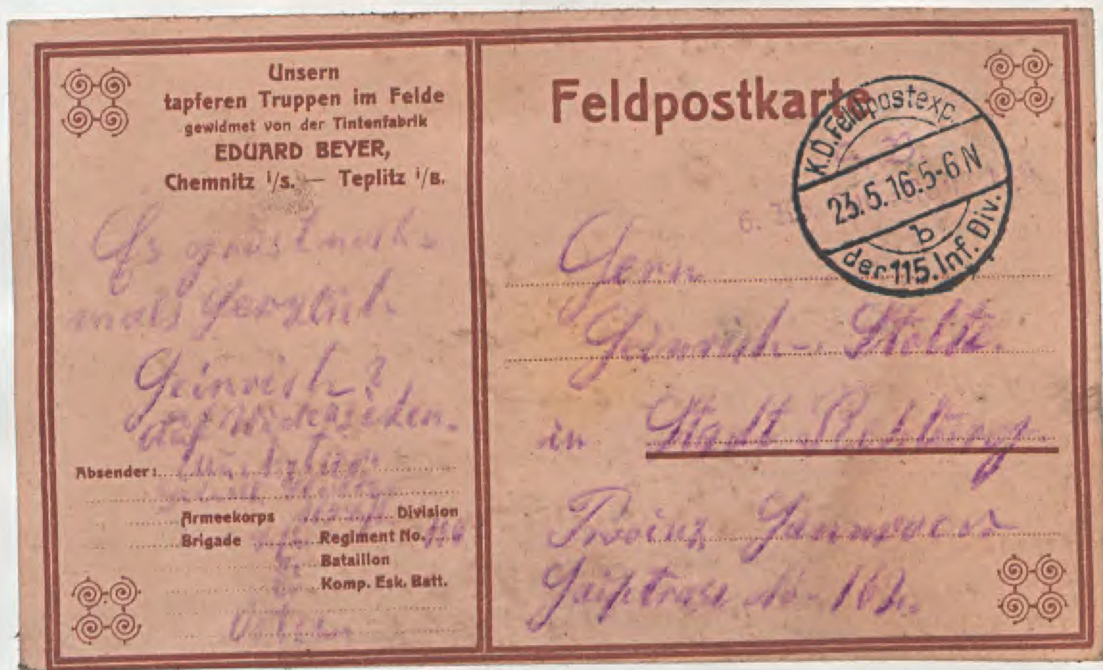 Unsern
tapferen Truppen im Felde
gewidmet von der Tintenfabrik
EDUARD BEYER,
Chemnitz i/S. — Teplitz i/B.
Es grüst noch-
mals Herzlich
Heinrich
auf Wiedersehen.
Absender:
Armeekorps Division
Brigade Regiment No. 136
Bataillon
Komp. Esk. Batt.
Osten
Feldpostkarte
K.D. Feldpostexp.
23.5.16.5-6N
b
der 115. Inf. Div.
Herrn
Heinrich Stolte.
in Stadt Rehburg
Provinz Hannover
No. 162.